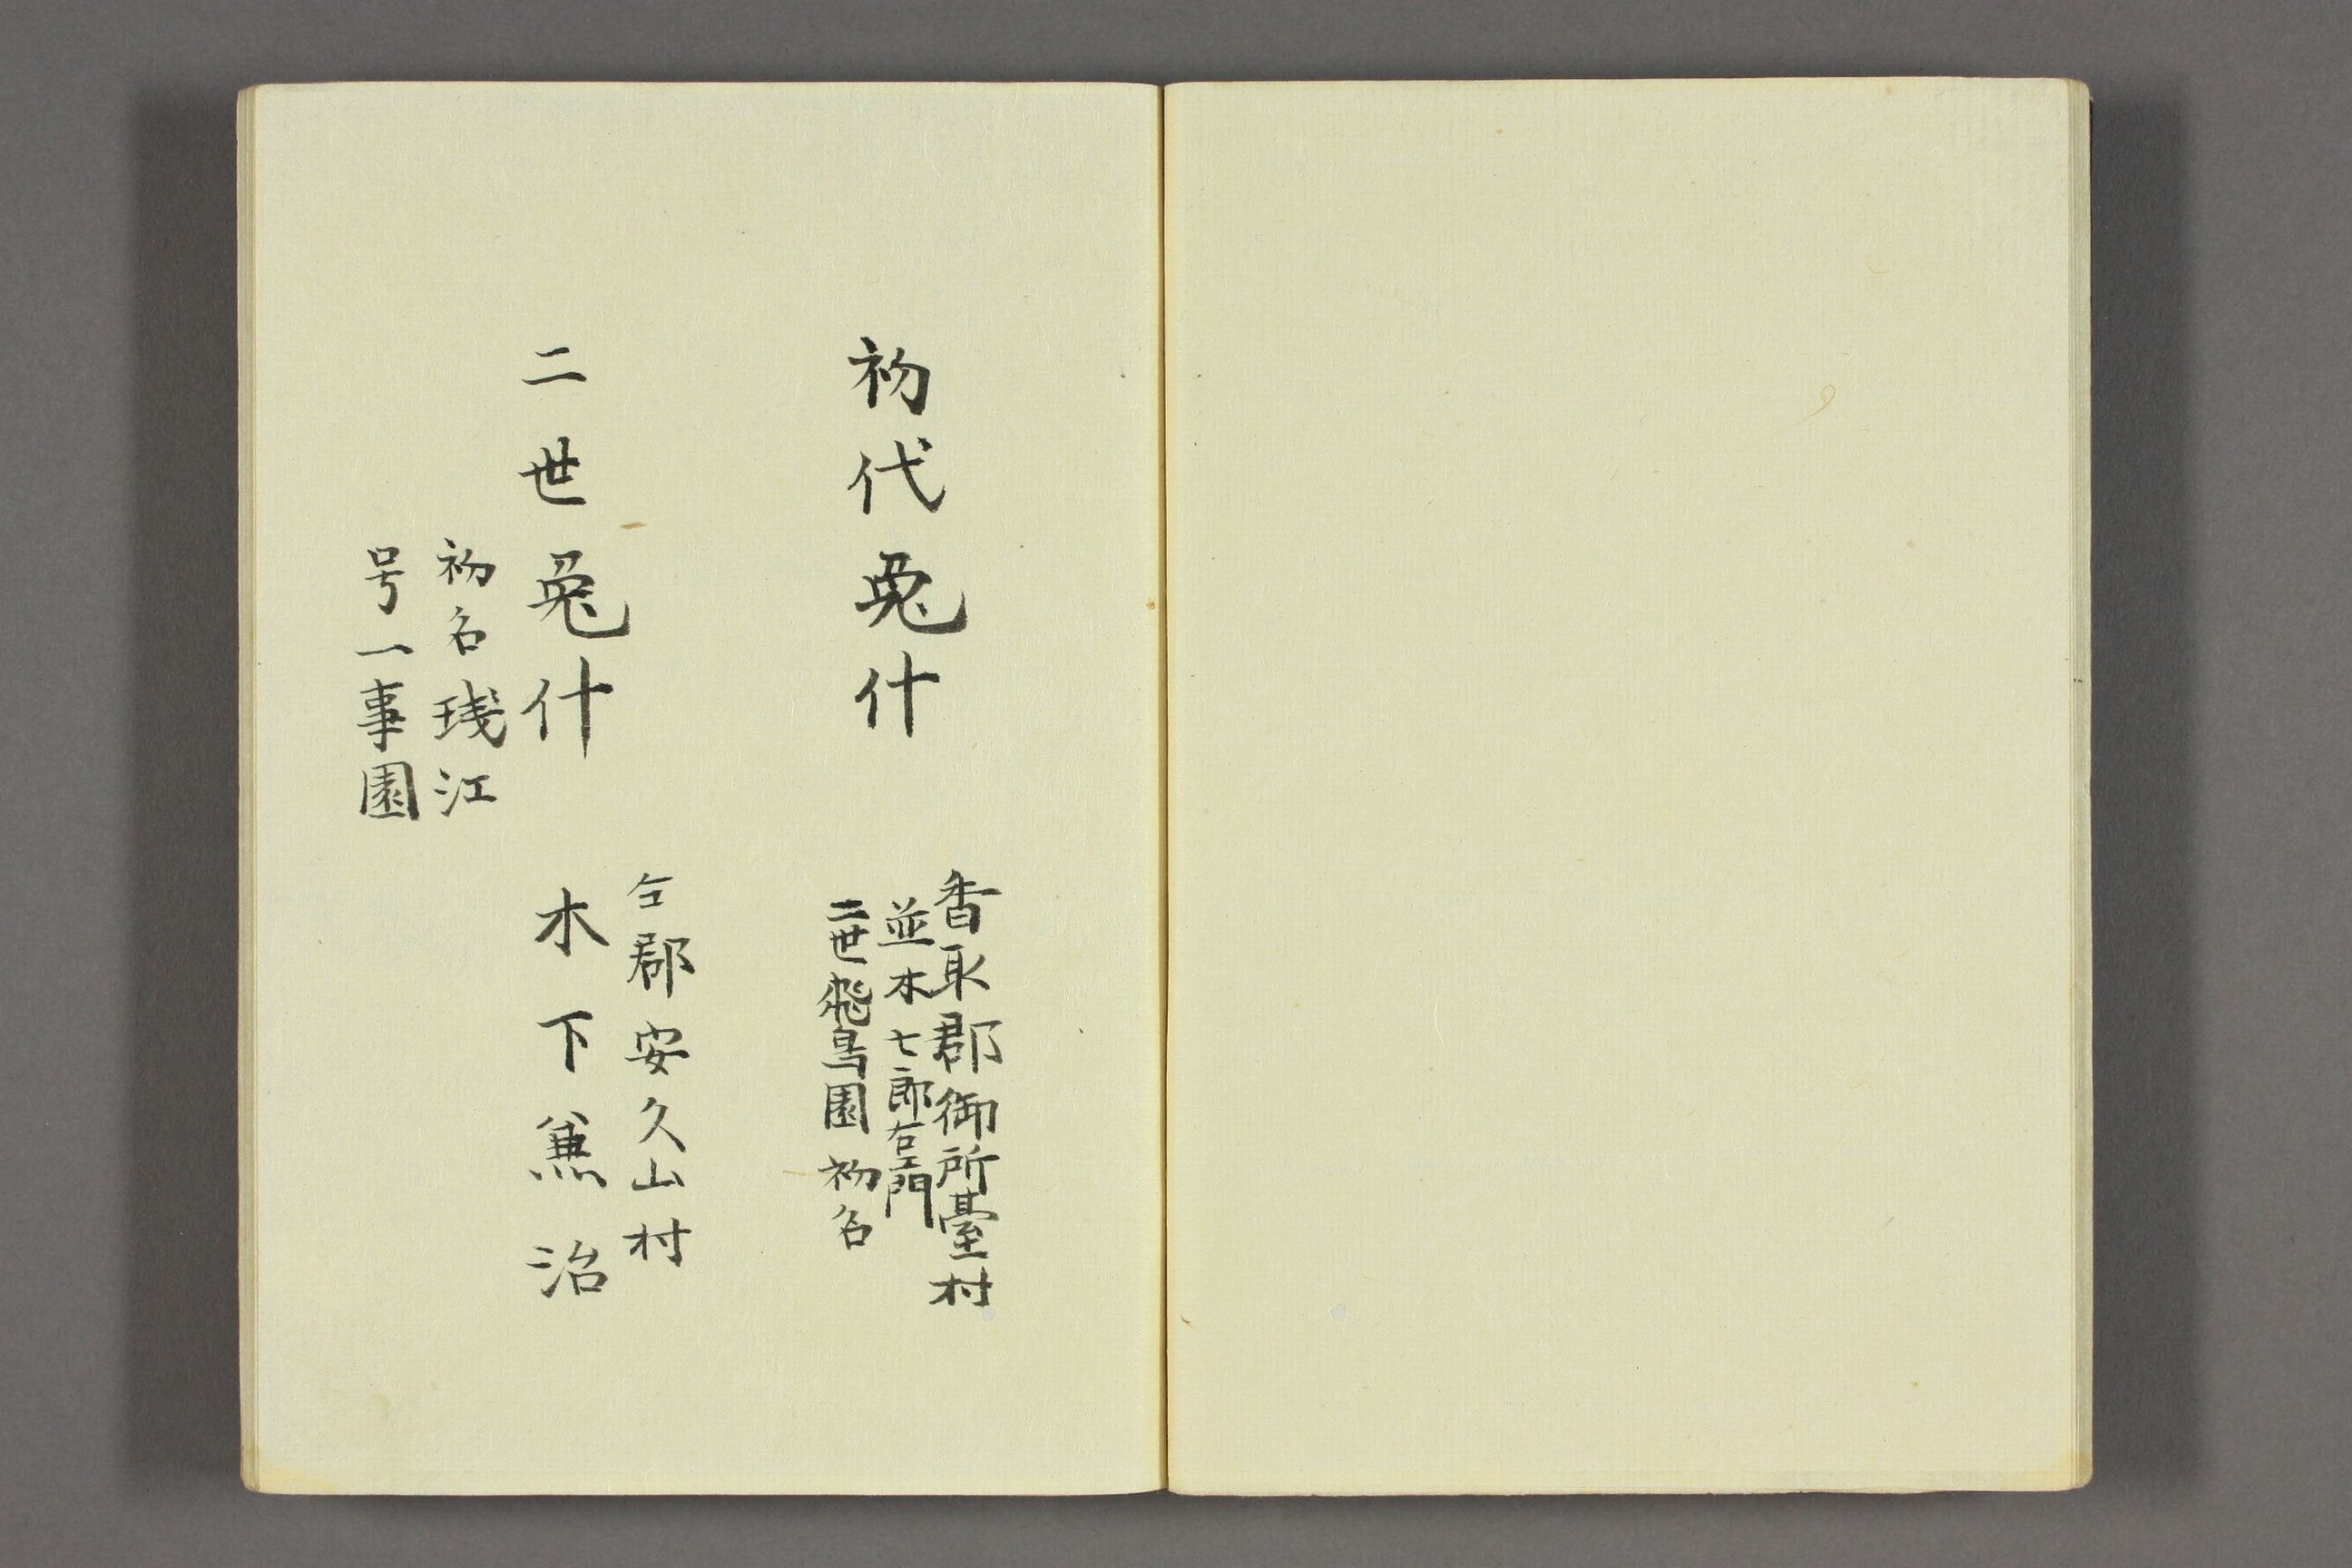 初代兎什
香取郡御所臺村
並木七郎右エ門
二世飛鳥園初名
二世兎什
仝郡安久山村
木下兼治
初名琖江
号一事園